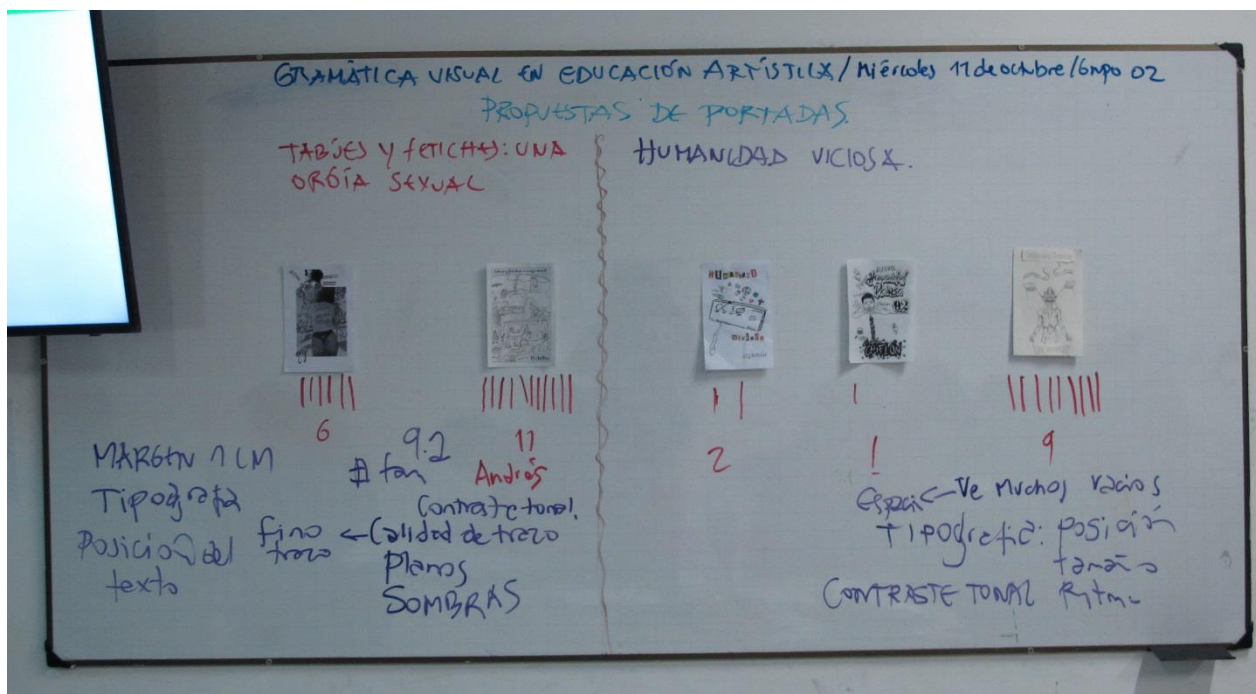 GRAMÁTICA VISUAL EN EDUCACIÓN ARTÍSTICA / Miércoles 11 de octubre / Grupo 02
PROPUESTAS DE PORTADAS.
TABÚES Y FETICHES: UNA
ORGÍA SEXUAL
6
11
Andrés
9.2
MARGEN 1 CM
Tipografía
Posición del
texto
Contraste tonal.
fino
trazo
← Calidad de trazo
Planos
SOMBRAS
HUMANIDAD VICIOSA.
HUMANIDAD
VICIOSA
Humanidad
Viciosa
2
1
9
← Ve muchos vacíos
Tipografía: posición
tamaño
Ritmo
CONTRASTE TONAL